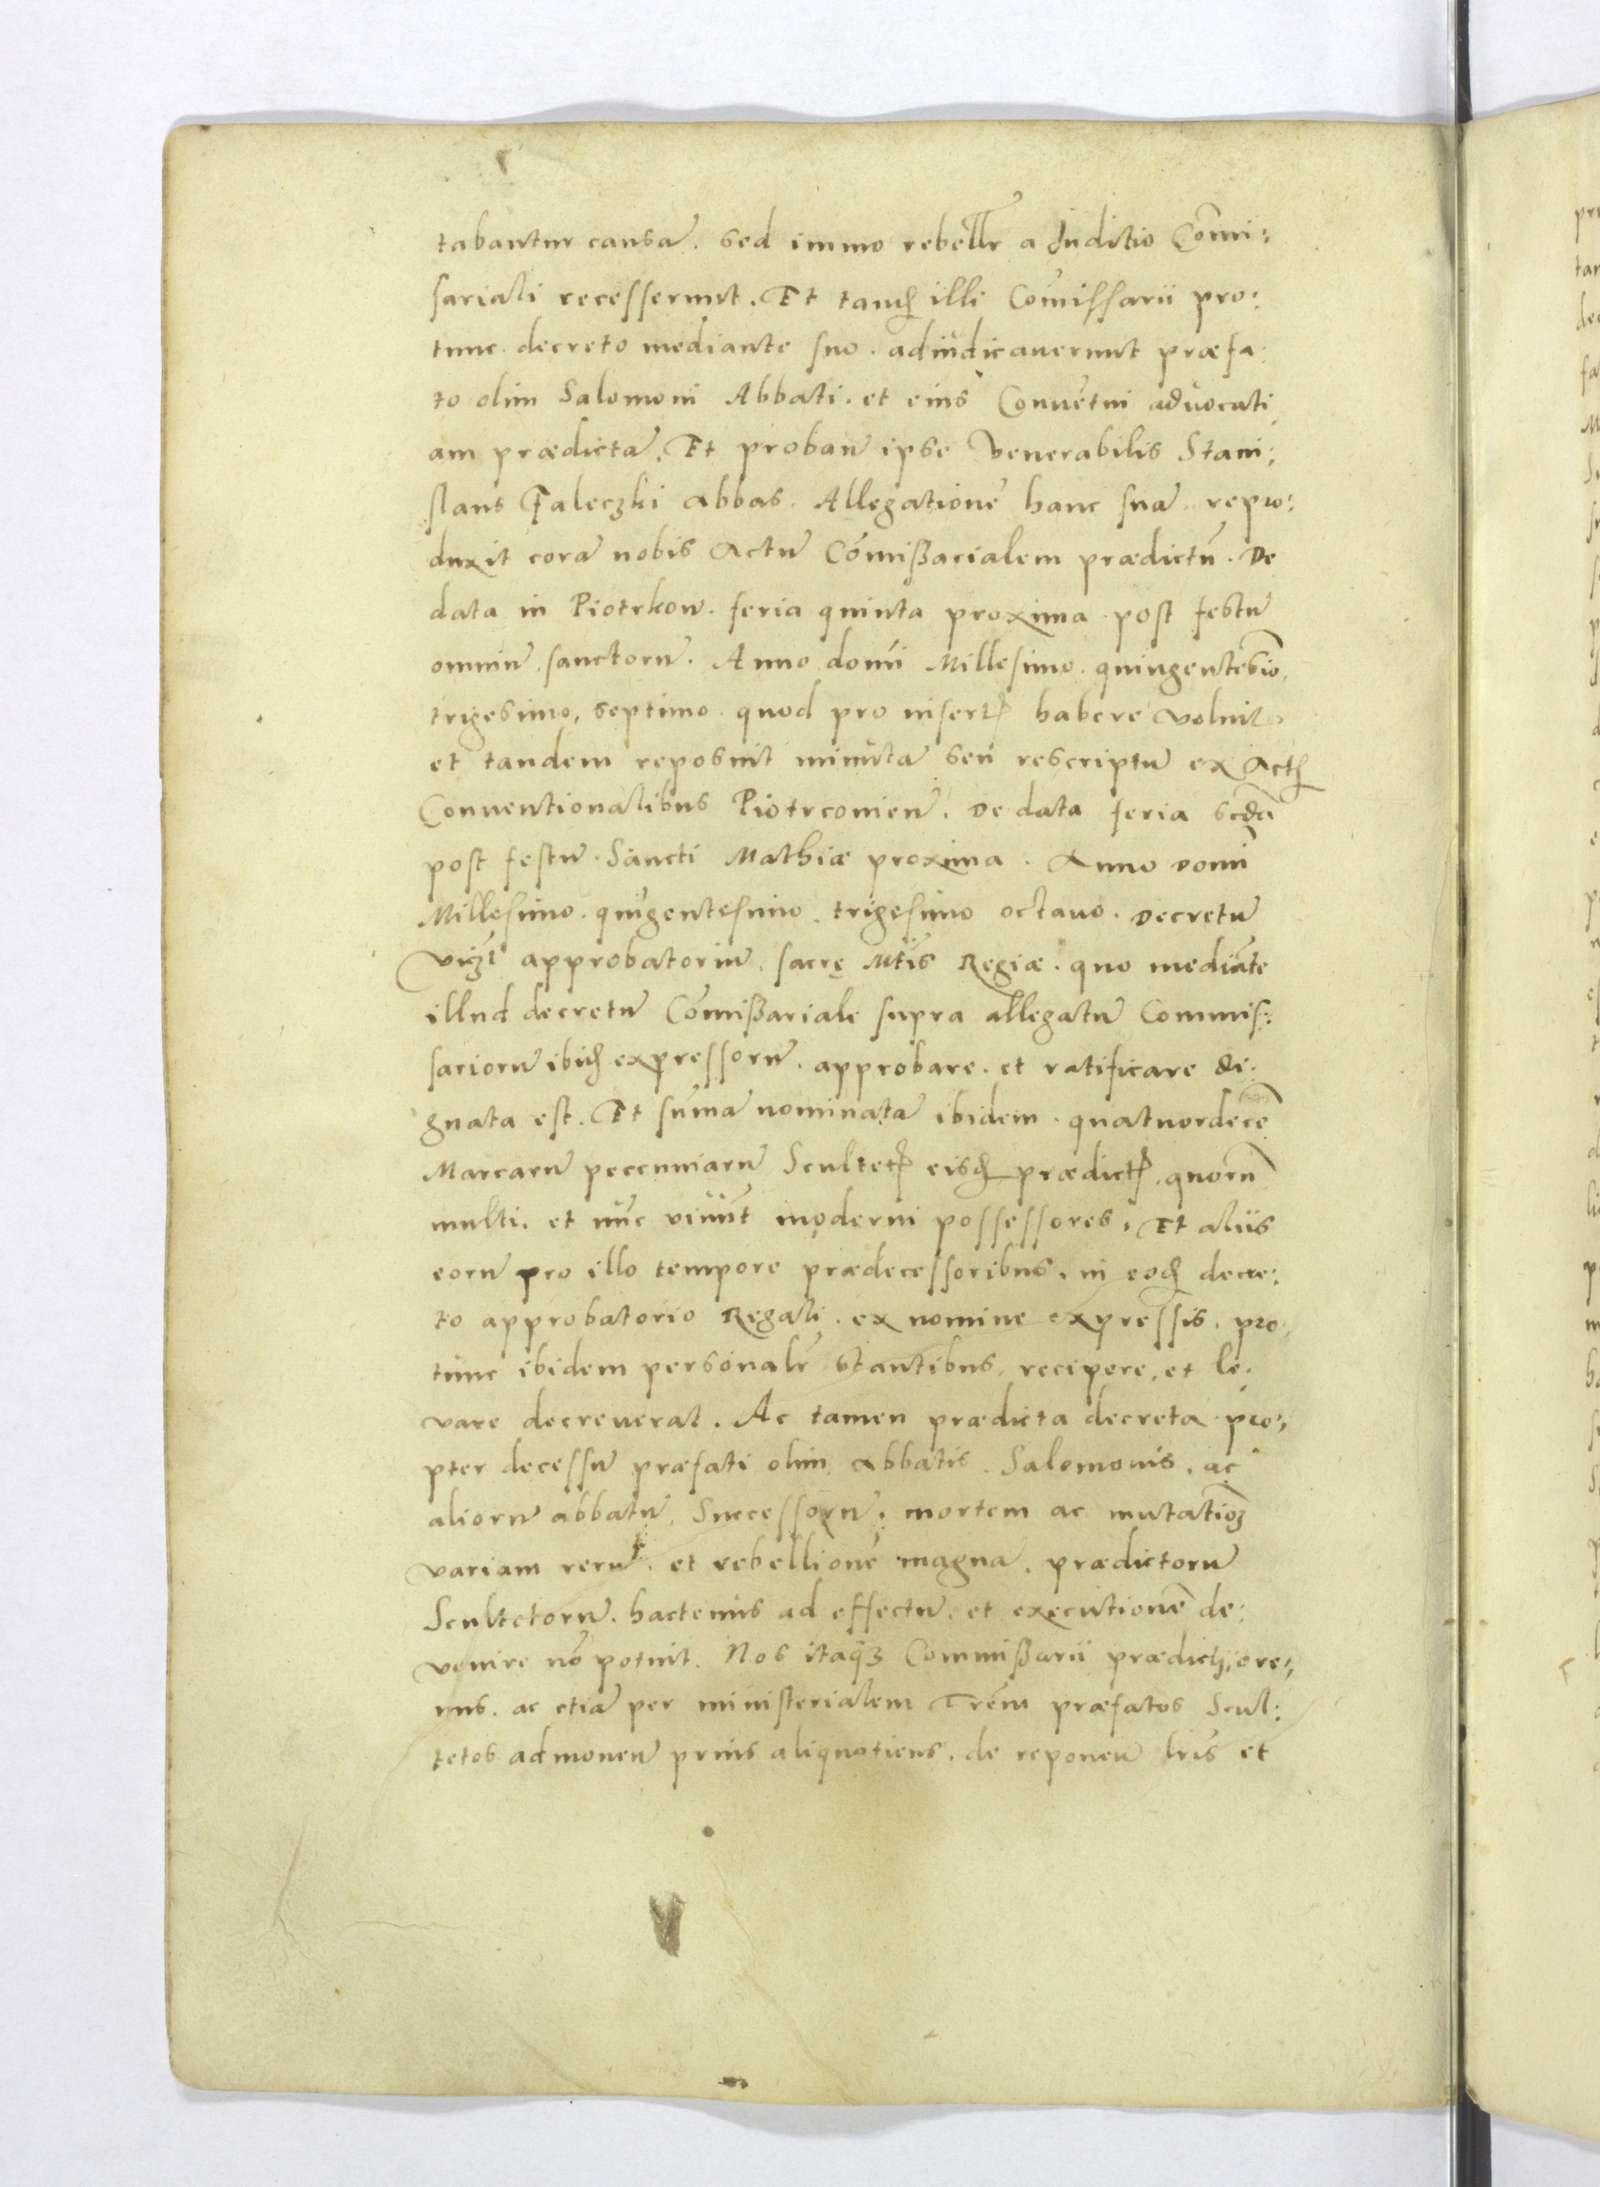 tabantur causã. sed immo rebellr̃ a Juditio Com̃i:
sariali recesserunt. Et tandȩ illi Com̃issarii pro:
tunc decreto mediante suo. adiudicaverunt præfa.
to olim Salomoni Abbati. et eius Convẽtui advocati
am prædictã. Et proban̄ ipse Venerabilis Stani:
slaus Faleczki Abbas. Allegationẽ hanc suã. repro:
duxit corã nobis Actũ Com̃ißarialem prædictũ. De
data in Piotrkow. feria quinta proxima post festũ
omniũ sanctorũ. Anno domĩ Millesimo. quingentesĩo.
trigesimo, septimo. quod pro insertꝭ habere voluit.
et tandem reposuit minutã seu rescriptũ ex Actꝭ
Conventionalibus Piotrconieñ. De data feria scdã
post festũ. Sancti Mathiæ proxima. Anno domĩ
Millesimo. quĩgentesimo. trigesimo octavo. Decretũ
viczt approbatoriũ. sacrę Mt̃is Regiæ. quo mediãte
illud decretũ Com̃ißariale supra allegatũ Commis:
sariorũ ibidȩ expressorũ. approbare. et ratificare di:
gnata est. Et sum̃a nominata ibidem. quatuordecẽ
Marcarũ peccuniarũ Scultetꝭ eisdȩ prædictꝭ, quorũ
multi. et nũc viũnt moderni possessores. Et aliis
eorũ pro illo tempore prædecessoribus. in eodȩ decre:
to approbatorio Regali. ex nomine expressis. pro.
tunc ibidem personalr̃ stantibus. recipere. et le.
vare decreverat. Ac tamen prædicta decreta pro:
pter decessũ præfati olim Abbatis. Salomonis. ac
aliorũ abbatũ. Successorũ. mortem ac mutatiõȝ
variam rerũ. et rebellionẽ magnã. prædictorũ
Scultetorũ. hactenus ad effectũ. et executionẽ de:
venire nõ potuit. Nos itaqȝ Commißarii prædicti, ore:
nus. ac etiã per ministerialem Trẽm præfatos Scul:
tetos admoneñ prius aliquotiens. de reponeñ lrĩs et